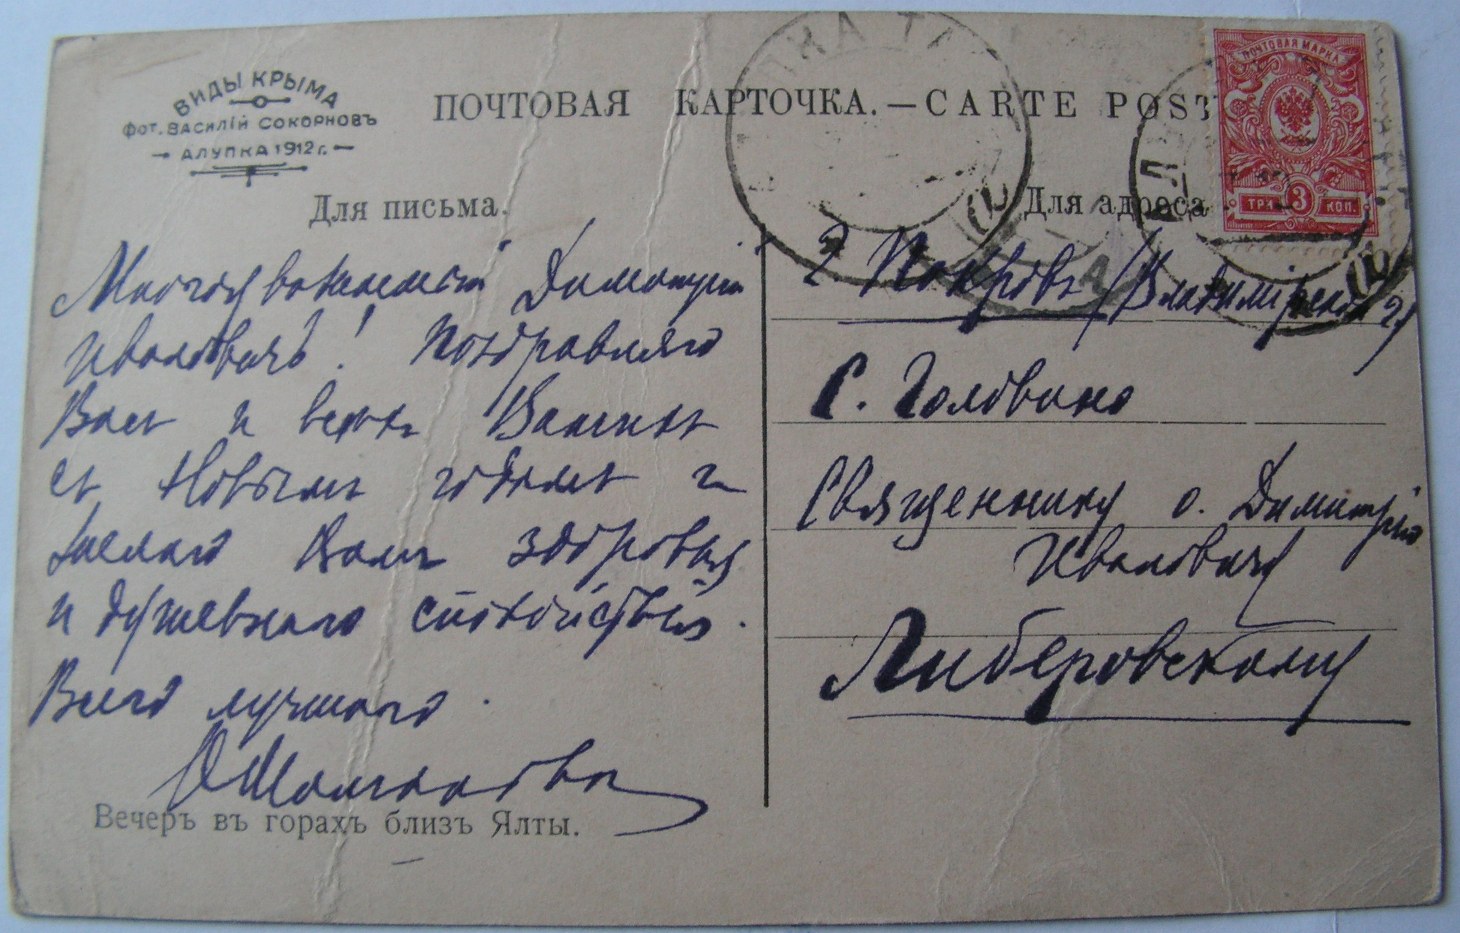 ВИДЫ КРЫМА
Фот. ВАСИЛІЙ СОКОРНОВЪ
АЛУПКА 1912 г.
ПОЧТОВАЯ КАРТОЧКА. — CARTE POST
ПОЧТОВАЯ МАРКА
ТРИ 3 КОП.
Для письма.
Для адреса
Многоуважаемый Димитрій
Ивановичъ! Поздравляю
Васъ и всѣхъ Вашихъ
съ Новымъ годомъ и
желаю Вамъ здоровья
и душевнаго спокойствія.
Всего лучшаго.
Вечеръ въ горахъ близъ Ялты.
г. Покровъ (Владимірской г)
С. Головино
Священнику о. Димитрію
Ивановичу
Либеровскому